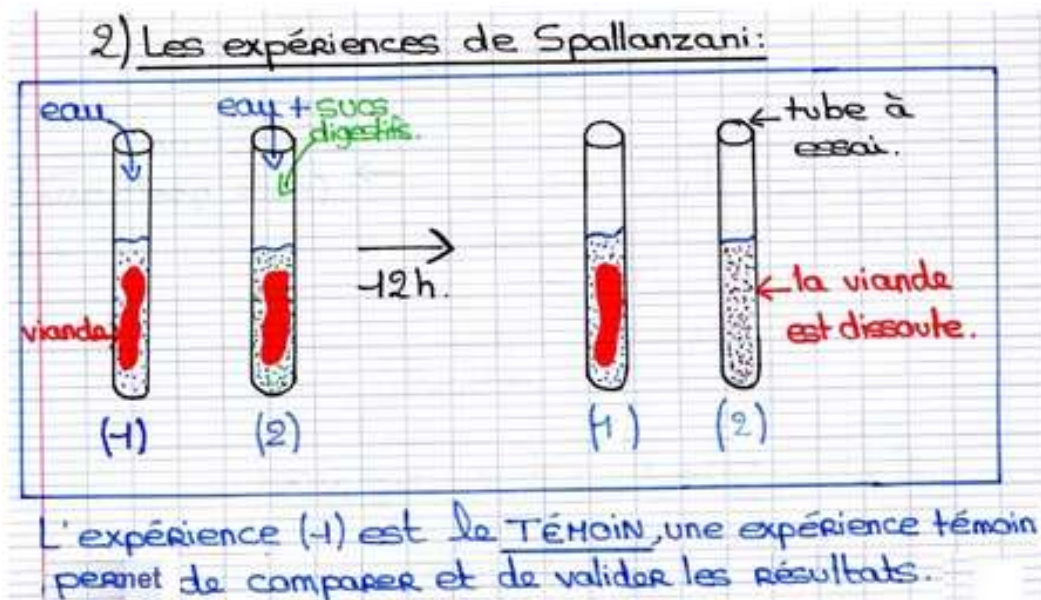 2) Les expériences de Spallanzani:
eau
eau + sucs
digestifs.
tube à
essai.
12h.
viande
la viande
est dissoute.
(1)
(2)
(1)
(2)
L'expérience (1) est le TÉMOIN, une expérience témoin
permet de comparer et de valider les résultats.